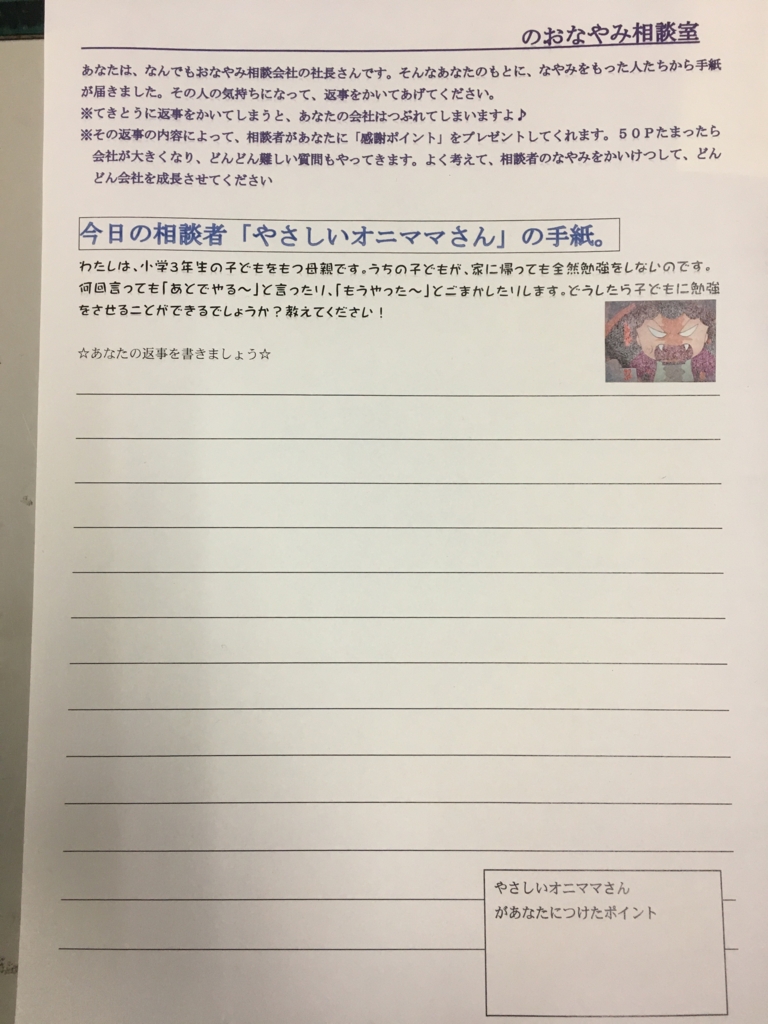 のおなやみ相談室
あなたは、なんでもおなやみ相談会社の社長さんです。そんなあなたのもとに、なやみをもった人たちから手紙
が届きました。その人の気持ちになって、返事をかいてあげてください。
※てきとうに返事をかいてしまうと、あなたの会社はつぶれてしまいますよ♪
※その返事の内容によって、相談者があなたに「感謝ポイント」をプレゼントしてくれます。５０Ｐたまったら
会社が大きくなり、どんどん難しい質問もやってきます。よく考えて、相談者のなやみをかいけつして、どん
どん会社を成長させてください
今日の相談者「やさしいオニママさん」の手紙。
わたしは、小学３年生の子どもをもつ母親です。うちの子どもが、家に帰っても全然勉強をしないのです。
何回言っても「あとでやる～」と言ったり、「もうやった～」とごまかしたりします。どうしたら子どもに勉強
をさせることができるでしょうか？教えてください！
☆あなたの返事を書きましょう☆
やさしいオニママさん
があなたにつけたポイント